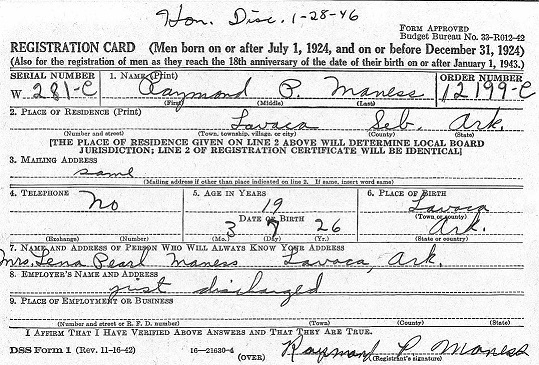 Hon. Disc. 1-28-46
FORM APPROVED
Budget Bureau No. 33-R012-42
REGISTRATION CARD (Men born on or after July 1, 1924, and on or before December 31, 1924)
(Also for the registration of men as they reach the 18th anniversary of the date of their birth on or after January 1, 1943.)
SERIAL NUMBER 1. NAME (Print) ORDER NUMBER
W 281-C Raymond P. Maness 12199-C
(First) (Middle) (Last)
2. PLACE OF RESIDENCE (Print)
Lavaca Seb. Ark.
(Number and street) (Town, township, village, or city) (County) (State)
[THE PLACE OF RESIDENCE GIVEN ON LINE 2 ABOVE WILL DETERMINE LOCAL BOARD
JURISDICTION; LINE 2 OF REGISTRATION CERTIFICATE WILL BE IDENTICAL]
3. MAILING ADDRESS
same
(Mailing address if other than place indicated on line 2. If same, insert word same)
4. TELEPHONE 5. AGE IN YEARS 6. PLACE OF BIRTH
no 19 Lavaca
DATE OF BIRTH (Town or county)
3 7 26 Ark.
(Exchange) (Number) (Mo.) (Day) (Yr.) (State or country)
7. NAME AND ADDRESS OF PERSON WHO WILL ALWAYS KNOW YOUR ADDRESS
Mrs. Lena Pearl Maness Lavaca, Ark.
8. EMPLOYER'S NAME AND ADDRESS
just discharged
9. PLACE OF EMPLOYMENT OR BUSINESS
(Number and street or R. F. D. number) (Town) (County) (State)
I AFFIRM THAT I HAVE VERIFIED ABOVE ANSWERS AND THAT THEY ARE TRUE.
DSS Form 1 (Rev. 11-16-42) 16—21630-4 (OVER) Raymond P. Maness
(Registrant's signature)